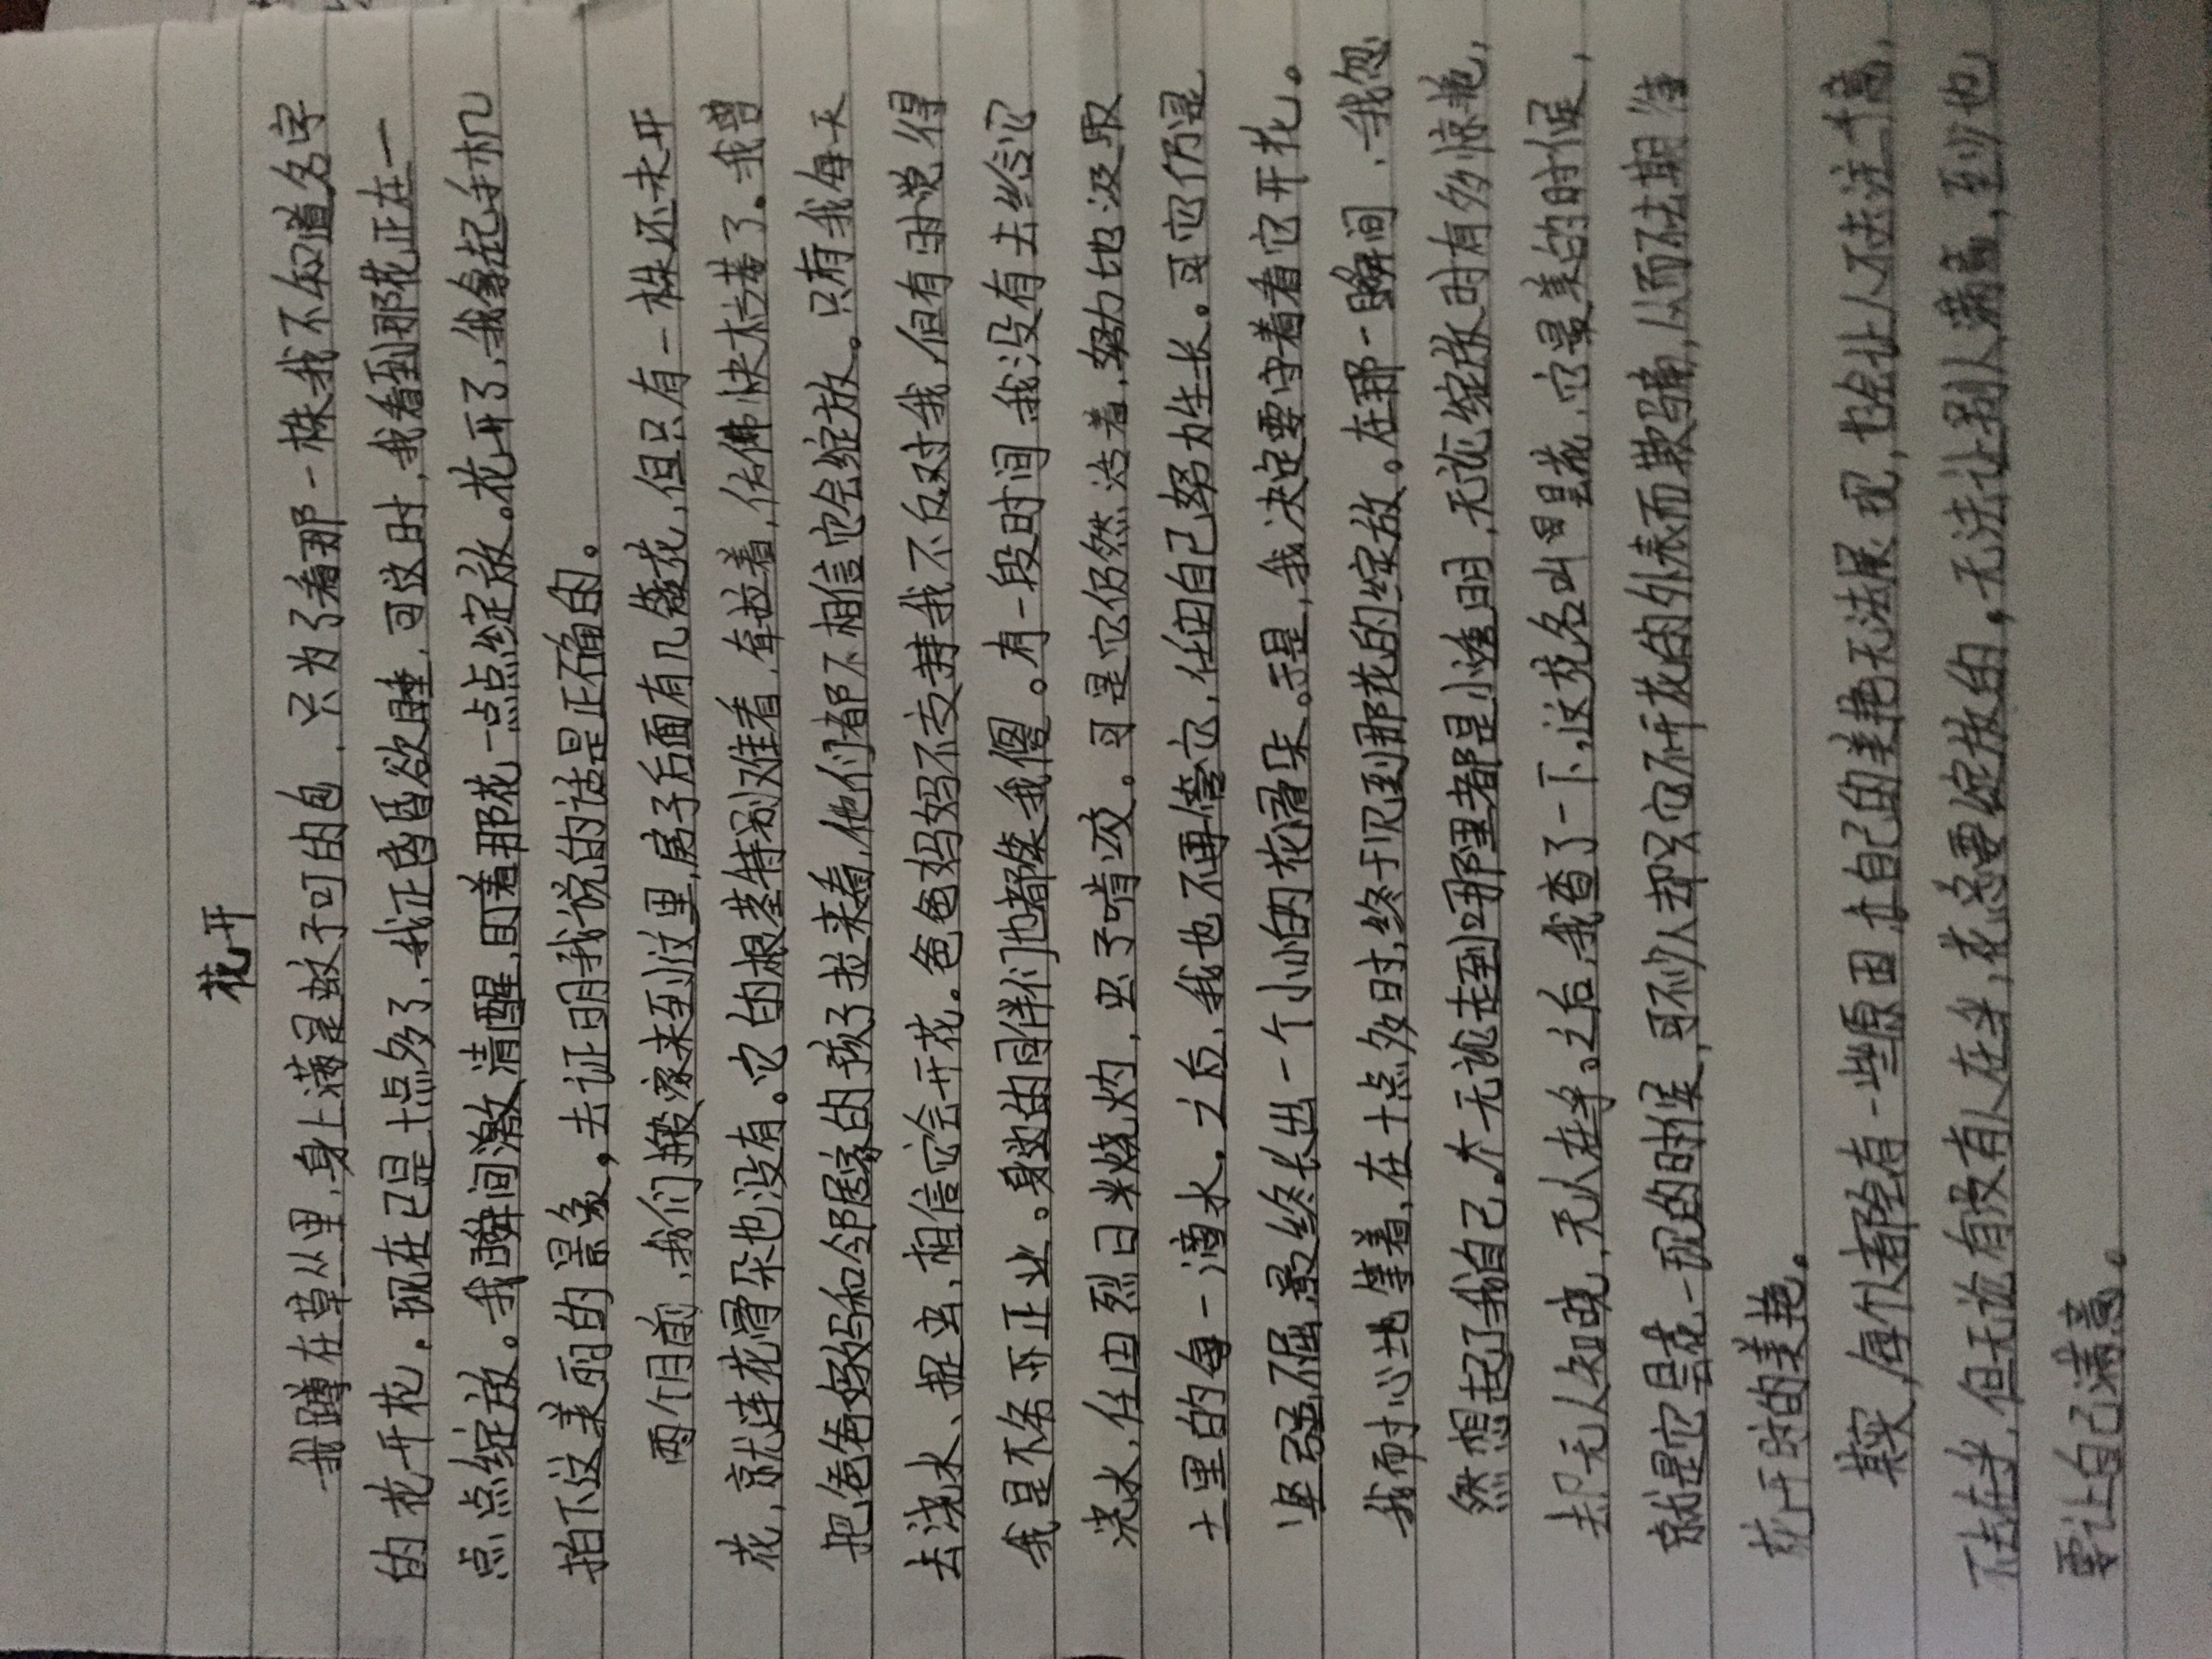 花开
我蹲在草丛里，身上满是蚊子叮的包，只为了看那一株我不知道名字
的花开花。现在已是十点多了，我正昏昏欲睡，可这时，我看到那花正在一
点点绽放。我瞬间激清醒，盯着那花一点点绽放。花开了，我拿起手机
拍下这美丽的景象，去证明我说的话是正确的。
两个月前，我们搬家来到这里，房子后面有几簇花，但只有一株还未开
花，就连花骨朵也没有。它的根茎特别难看，耷拉着，仿佛快枯萎了。我曾
把爸爸妈妈和邻居家的孩子拉来看，他们都不相信它会绽放。只有我每天
去浇水、捉虫，相信它会开花。爸爸妈妈不支持我不反对我，但有时觉得
我是不务正业。身边的同伴们也都笑我傻。有一段时间我没有去给它
浇水，任由烈日炙烧灼，虫子啃咬。可是它仍然活着，努力地汲取
土里的每一滴水。之后，我也不再管它，任由自己努力生长。可它仍是
坚强不屈，最终长出一个小小的花骨朵。于是，我决定要守着看它开花。
我耐心地等着，在十点多时，终于见到那花的绽放。在那一瞬间，我忽
然想起了我自己。无论走到哪里都是小透明，无论绽放时有多惊艳，
却无人知晓，无人在乎。之后，我查了一下，这花名叫昙花，它最美的时候，
就是它昙花一现的时候，可不少人却只它不开花的外表而欺骗，从而不去期待
花开时的美艳。
其实，每个人都会有一些原因，在自己的美艳无法展现，也会让人不去注意，
不去在乎，但无论有没有人在乎，花总要绽放的。无法让别人满意，至少也
要让自己满意。